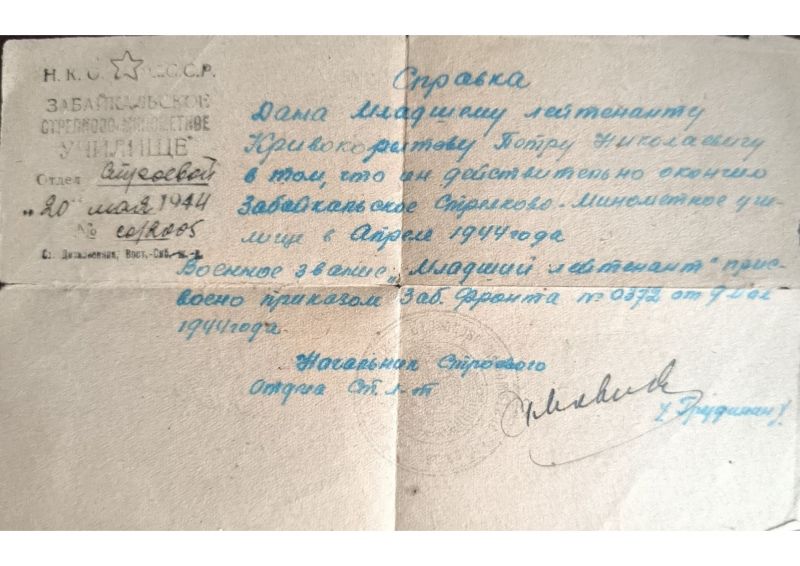 Н.К.О. С.С.С.Р.
ЗАБАЙКАЛЬСКОЕ
СТРЕЛКОВО-МИНОМЕТНОЕ
УЧИЛИЩЕ
Отдел Строевой
"20" мая 1944
№ со/2005
Ст. Дивизионная, Вост.-Сиб. ж. д.
Справка
Дана Младшему лейтенанту
Кривокорытову Петру Николаевичу
в том, что он действительно окончил
Забайкальское Стрелково-Минометное учи-
лище в Апреле 1944 года
Военное звание „Младший лейтенант" прис-
воено приказом Заб. Фронта № 0372 от 9 мая
1944 года.
Начальник Строевого
отдела Ст. л-т